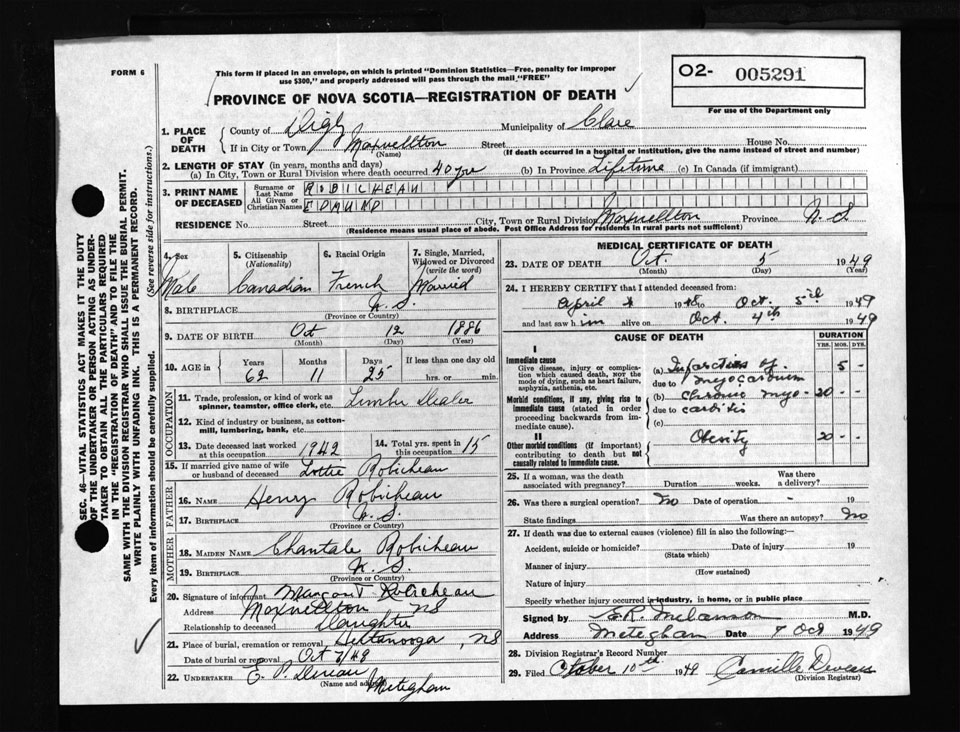 FORM 6
This form if placed in an envelope, on which is printed "Dominion Statistics—Free, penalty for improper
use $300," and properly addressed will pass through the mail "FREE"
O2- 005291
For use of the Department only
PROVINCE OF NOVA SCOTIA—REGISTRATION OF DEATH
1. PLACE OF DEATH
County of Digby Municipality of Clare
If in City or Town Maxwellton Street House No.
(Name) (If death occurred in a hospital or institution, give the name instead of street and number)
2. LENGTH OF STAY (in years, months and days)
(a) In City, Town or Rural Division where death occurred 40 yrs (b) In Province Lifetime (c) In Canada (if immigrant)
3. PRINT NAME OF DECEASED
Surname or Last Name ROBICHEAU
All Given or Christian Names EDMUND
RESIDENCE No. Street City, Town or Rural Division Maxwellton Province N.S
(Residence means usual place of abode. Post Office Address for residents in rural parts not sufficient)
4. Sex 5. Citizenship (Nationality) 6. Racial Origin 7. Single, Married, Widowed or Divorced (write the word)
Male Canadian French Married
8. BIRTHPLACE N.S.
(Province or Country)
9. DATE OF BIRTH Oct 12 1886
(Month) (Day) (Year)
10. AGE in Years Months Days If less than one day old
62 11 25 hrs. or min.
OCCUPATION
11. Trade, profession, or kind of work as
spinner, teamster, office clerk, etc. Dealer
12. Kind of industry or business, as cotton-
mill, lumbering, bank, etc.
13. Date deceased last worked at this occupation 1942 14. Total yrs. spent in this occupation 15
15. If married give name of wife
or husband of deceased Lottie Robicheau
FATHER
16. NAME Henry Robicheau
17. BIRTHPLACE N.S.
(Province or Country)
MOTHER
18. MAIDEN NAME Chantale Robicheau
19. BIRTHPLACE N.S.
(Province or Country)
20. Signature of informant Robicheau
Address Maxwellton NS
Relationship to deceased Daughter
21. Place of burial, cremation or removal NS
Date of burial or removal Oct 7/49
22. UNDERTAKER E. P.
(Name and address) Meteghan
MEDICAL CERTIFICATE OF DEATH
23. DATE OF DEATH Oct. 5 1949
(Month) (Day) (Year)
24. I HEREBY CERTIFY that I attended deceased from:
April 1948 to Oct. 5th 1949
and last saw him alive on Oct. 4th 1949
CAUSE OF DEATH DURATION
YRS. MOS. DYS.
I
Immediate cause
Give disease, injury or complica-
tion which caused death, NOT the
mode of dying, such as heart failure,
asphyxia, asthenia, etc.
(a) Infarction of - 5 -
due to myocardium
Morbid conditions, if any, giving rise to
immediate cause (stated in order
proceeding backwards from im-
mediate cause).
(b) chronic myo- 20 - -
due to carditis
(c)
II
Other morbid conditions (if important)
contributing to death but not
causally related to immediate cause.
Obesity 20 - -
25. If a woman, was the death
associated with pregnancy? Duration weeks. Was there a delivery?
26. Was there a surgical operation? No Date of operation - 19
State findings Was there an autopsy? No
27. If death was due to external causes (violence) fill in also the following:—
Accident, suicide or homicide? Date of injury 19
(State which)
Manner of injury
(How sustained)
Nature of injury
Specify whether injury occurred in industry, in home, or in public place
Signed by M.D.
Address Meteghan Date 7 Oct 1949
28. Division Registrar's Record Number
29. Filed October 10th 1949 Camille
(Division Registrar)
SEC. 46—VITAL STATISTICS ACT MAKES IT THE DUTY
OF THE UNDERTAKER OR PERSON ACTING AS UNDER-
TAKER TO OBTAIN ALL THE PARTICULARS REQUIRED
IN THE "REGISTRATION OF DEATH" AND TO FILE THE
SAME WITH THE DIVISION REGISTRAR WHO SHALL ISSUE THE BURIAL PERMIT.
WRITE PLAINLY WITH UNFADING INK. THIS IS A PERMANENT RECORD.
Every item of information should be carefully supplied. (See reverse side for instructions.)